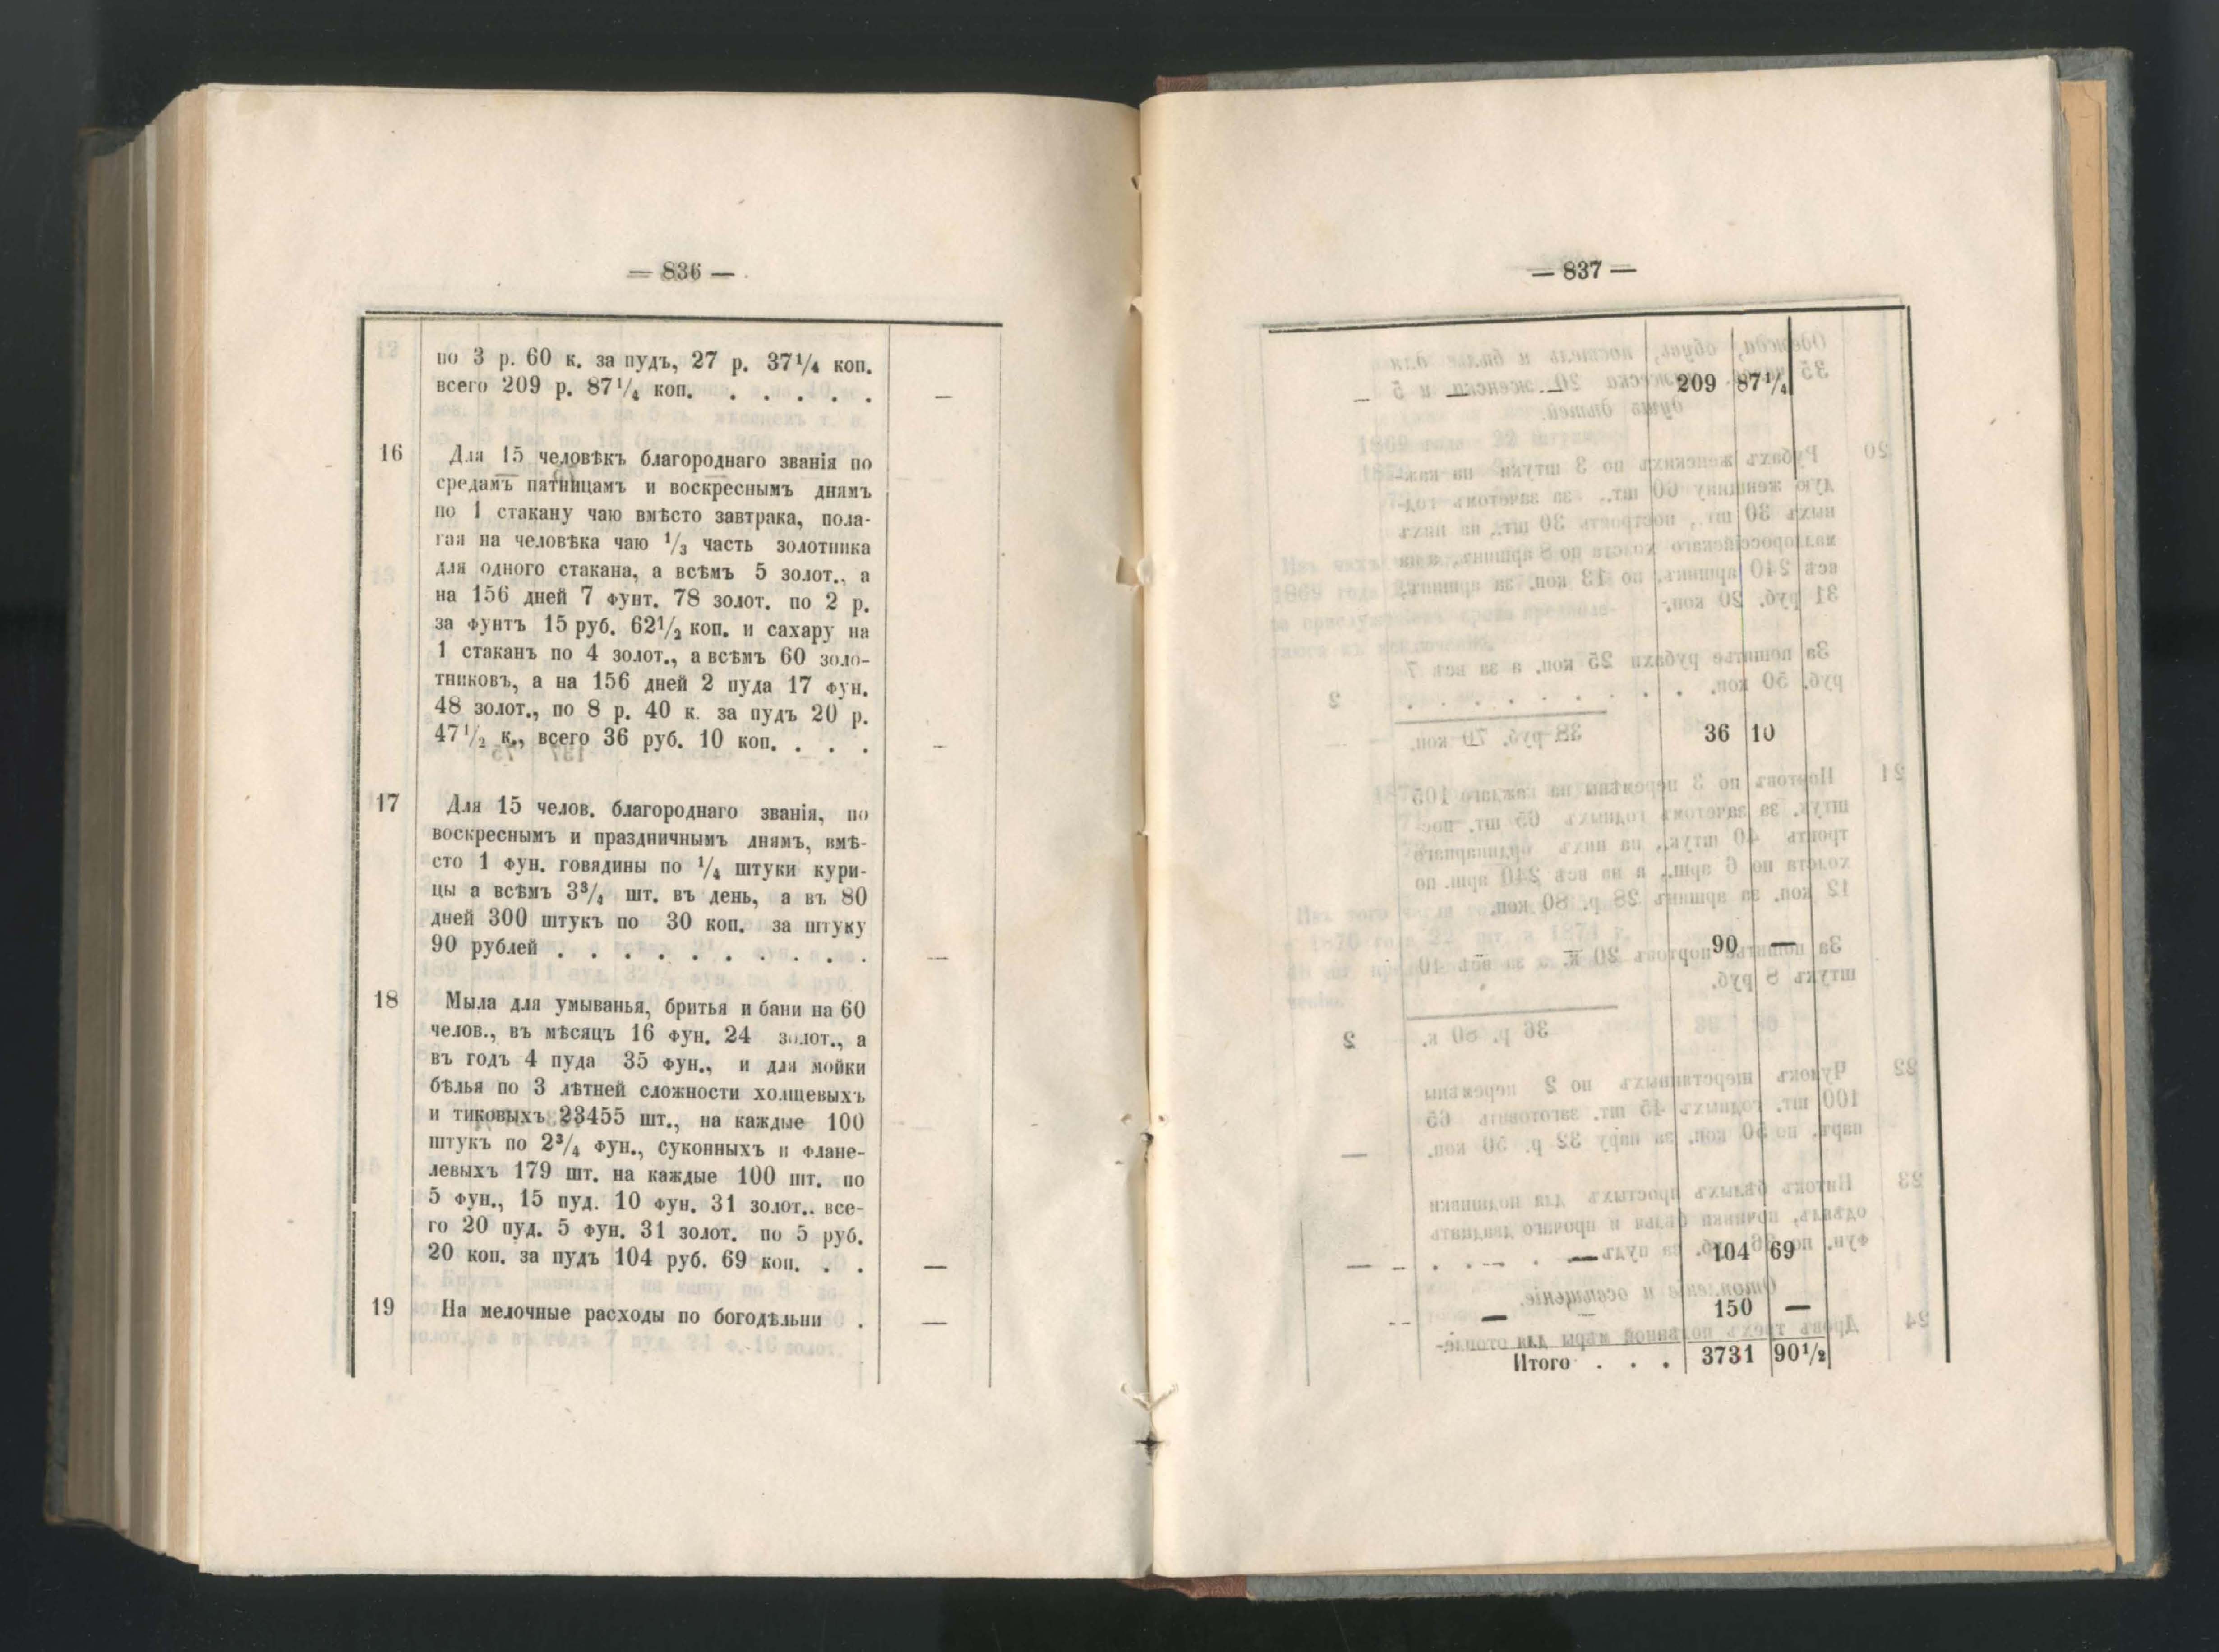 — 836 —
по 3 р. 60 к. за пудъ, 27 р. 37¹/₄ коп.
всего 209 р. 87¹/₄ коп. . . . . . . —
16 Для 15 человѣкъ благороднаго званія по
средамъ пятницамъ и воскреснымъ днямъ
по 1 стакану чаю вмѣсто завтрака, пола-
гая на человѣка чаю ¹/₃ часть золотника
для одного стакана, а всѣмъ 5 золот., а
на 156 дней 7 фунт. 78 золот. по 2 р.
за фунтъ 15 руб. 62¹/₂ коп. и сахару на
1 стаканъ по 4 золот., а всѣмъ 60 золо-
тниковъ, а на 156 дней 2 пуда 17 фун.
48 золот., по 8 р. 40 к. за пудъ 20 р.
47¹/₂ к., всего 36 руб. 10 коп. . . . —
17 Для 15 челов. благороднаго званія, по
воскреснымъ и праздничнымъ днямъ, вмѣ-
сто 1 фун. говядины по ¹/₄ штуки кури-
цы а всѣмъ 3³/₄ шт. въ день, а въ 80
дней 300 штукъ по 30 коп. за штуку
90 рублей . . . . . . . . . . . —
18 Мыла для умыванья, бритья и бани на 60
челов., въ мѣсяцъ 16 фун. 24 золот., а
въ годъ 4 пуда 35 фун., и для мойки
бѣлья по 3 лѣтней сложности холщевыхъ
и тиковыхъ 23455 шт., на каждые 100
штукъ по 2³/₄ фун., суконныхъ и флане-
левыхъ 179 шт. на каждые 100 шт. по
5 фун., 15 пуд. 10 фун. 31 золот.. все-
го 20 пуд. 5 фун. 31 золот. по 5 руб.
20 коп. за пудъ 104 руб. 69 коп. . . —
19 На мелочные расходы по богодѣльни . —
— 837 —
— — — 209 87¹/₄
— — 36 10
— — 90 —
— — — 104 69
— — — 150 —
Итого . . . 3731 90¹/₂